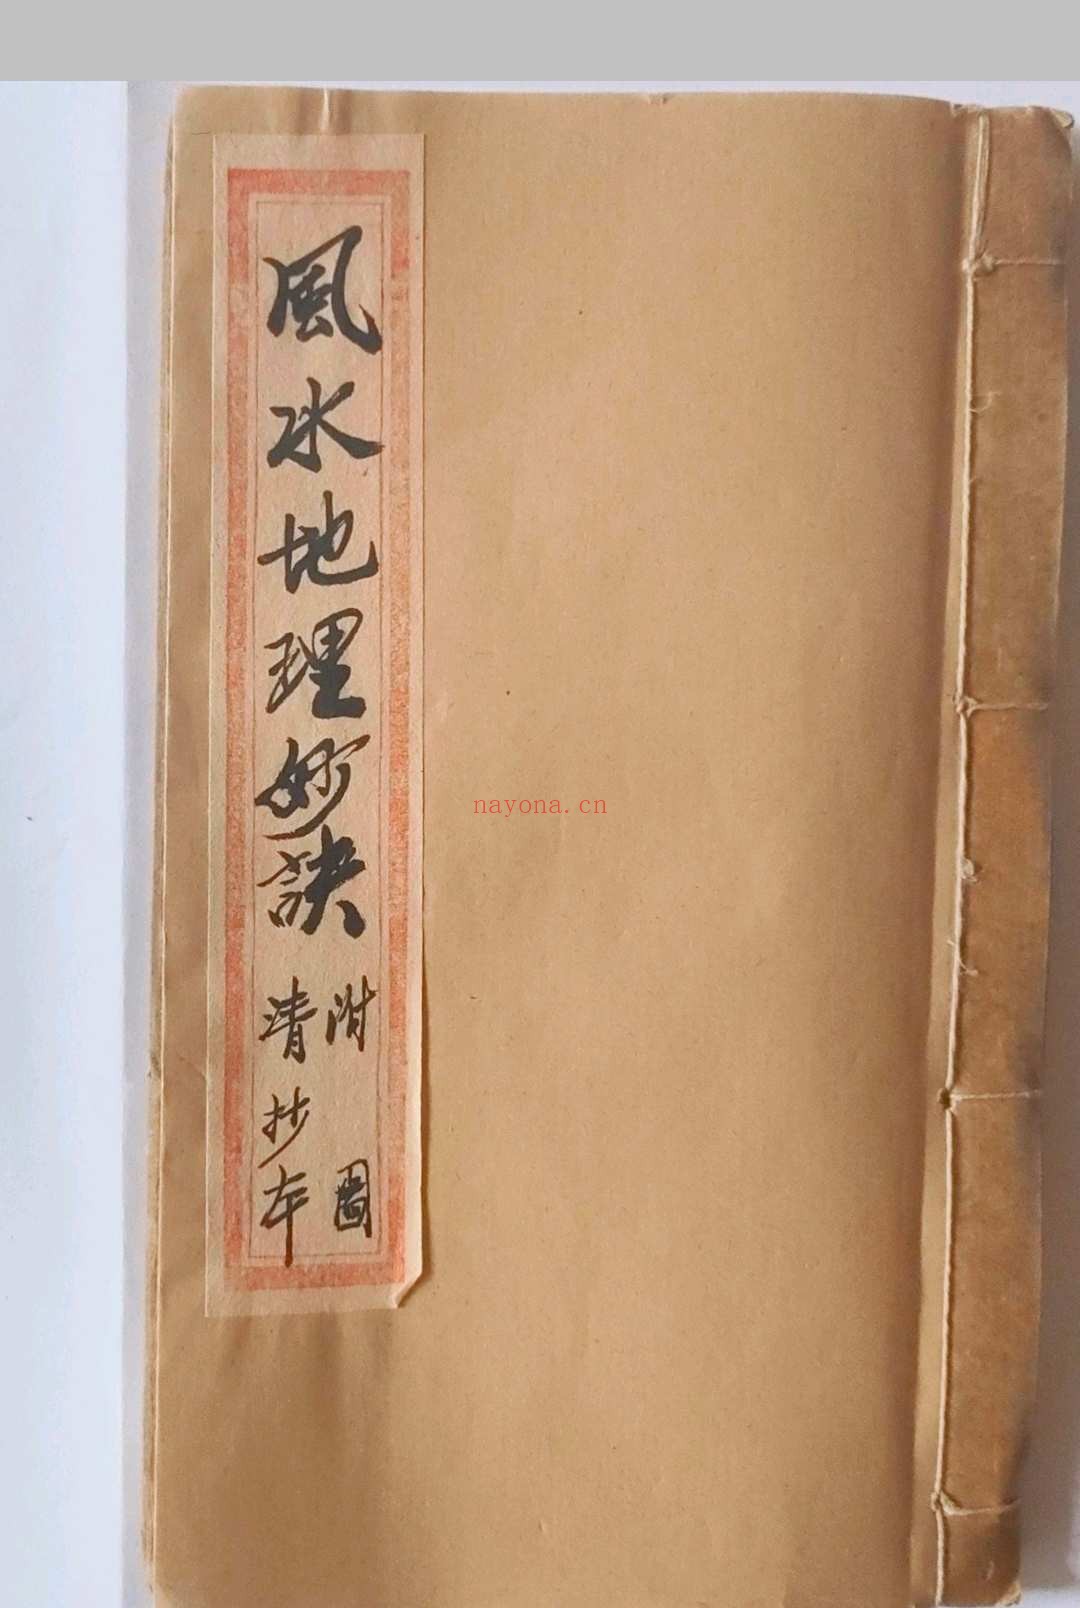 風水地理妙訣
附圖
清抄本
nayona.cn